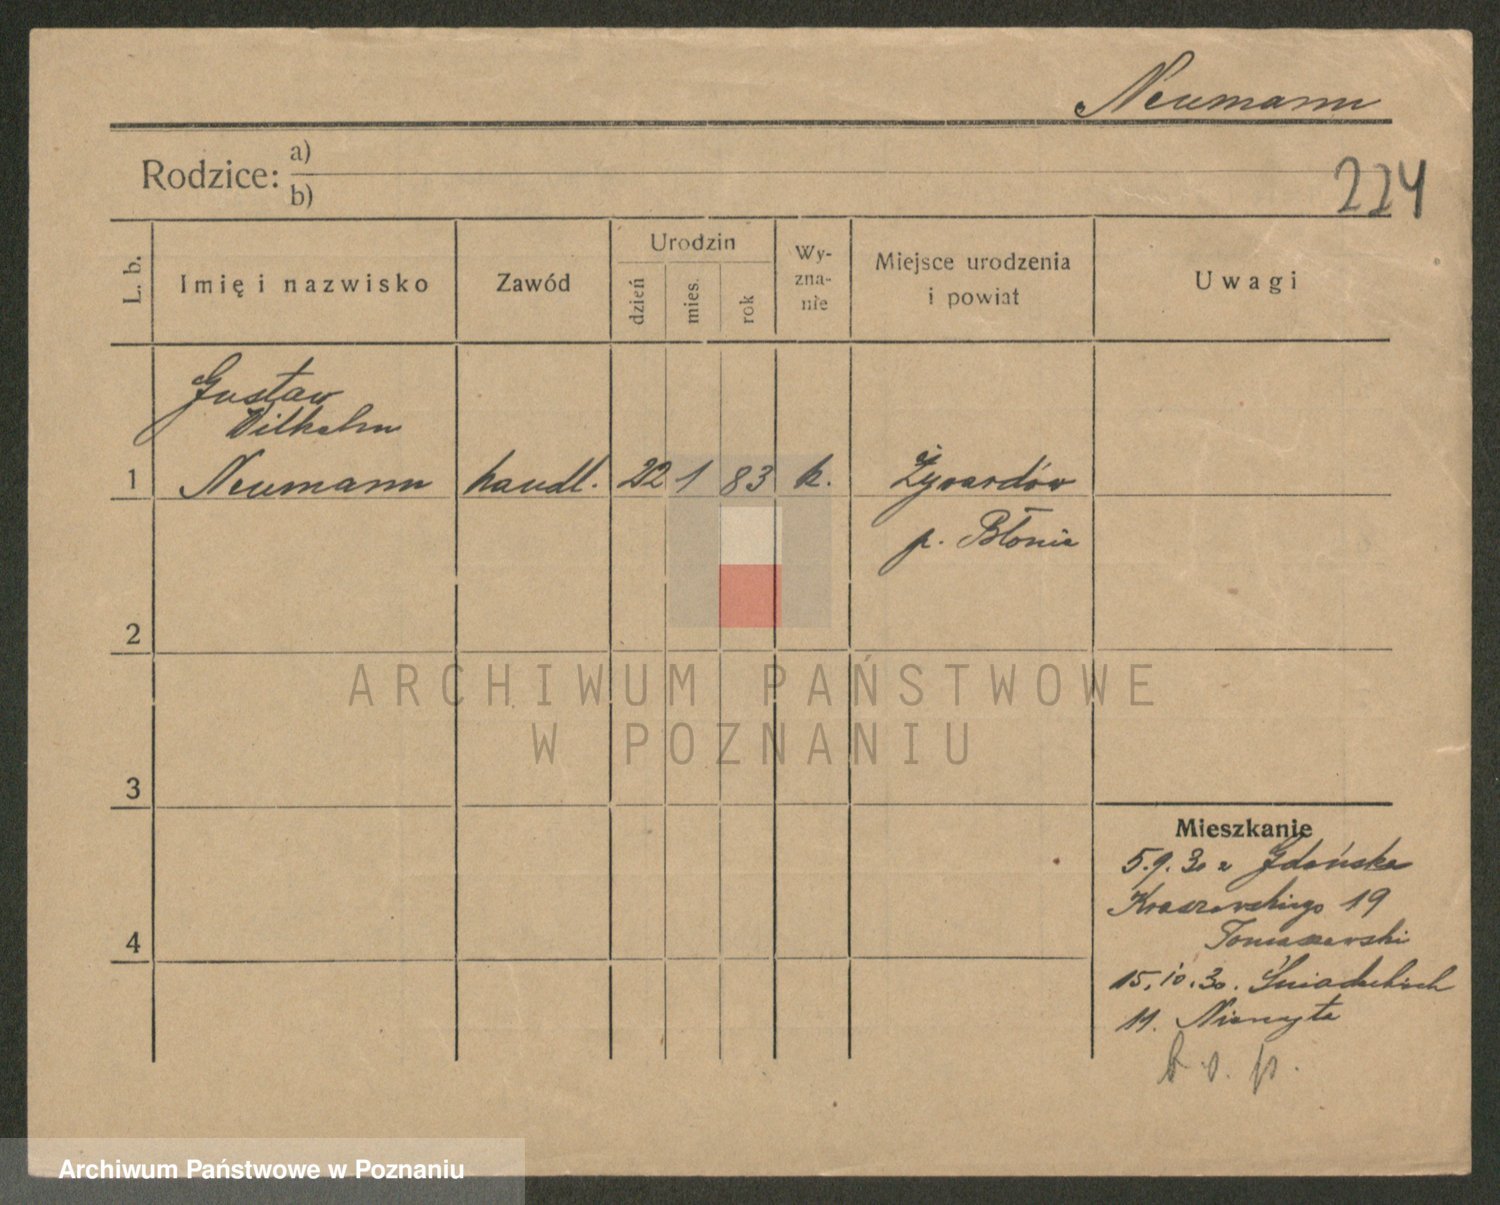 Neumann
Rodzice: a)
b)
224
L. b.
Imię i nazwisko
Zawód
Urodzin
dzień
mies.
rok
Wy-
zna-
nie
Miejsce urodzenia
i powiat
Uwagi
Gustav
Wilhelm
1 Neumann handl. 22 1 83 k. Żyrardów
p. Błonie
2
3
4
Mieszkanie
5.9.30 z Gdańska
Kraszewskiego 19
Tomaszewski
15.10.30. Śniadeckich
11.
ARCHIWUM PAŃSTWOWE
W POZNANIU
Archiwum Państwowe w Poznaniu